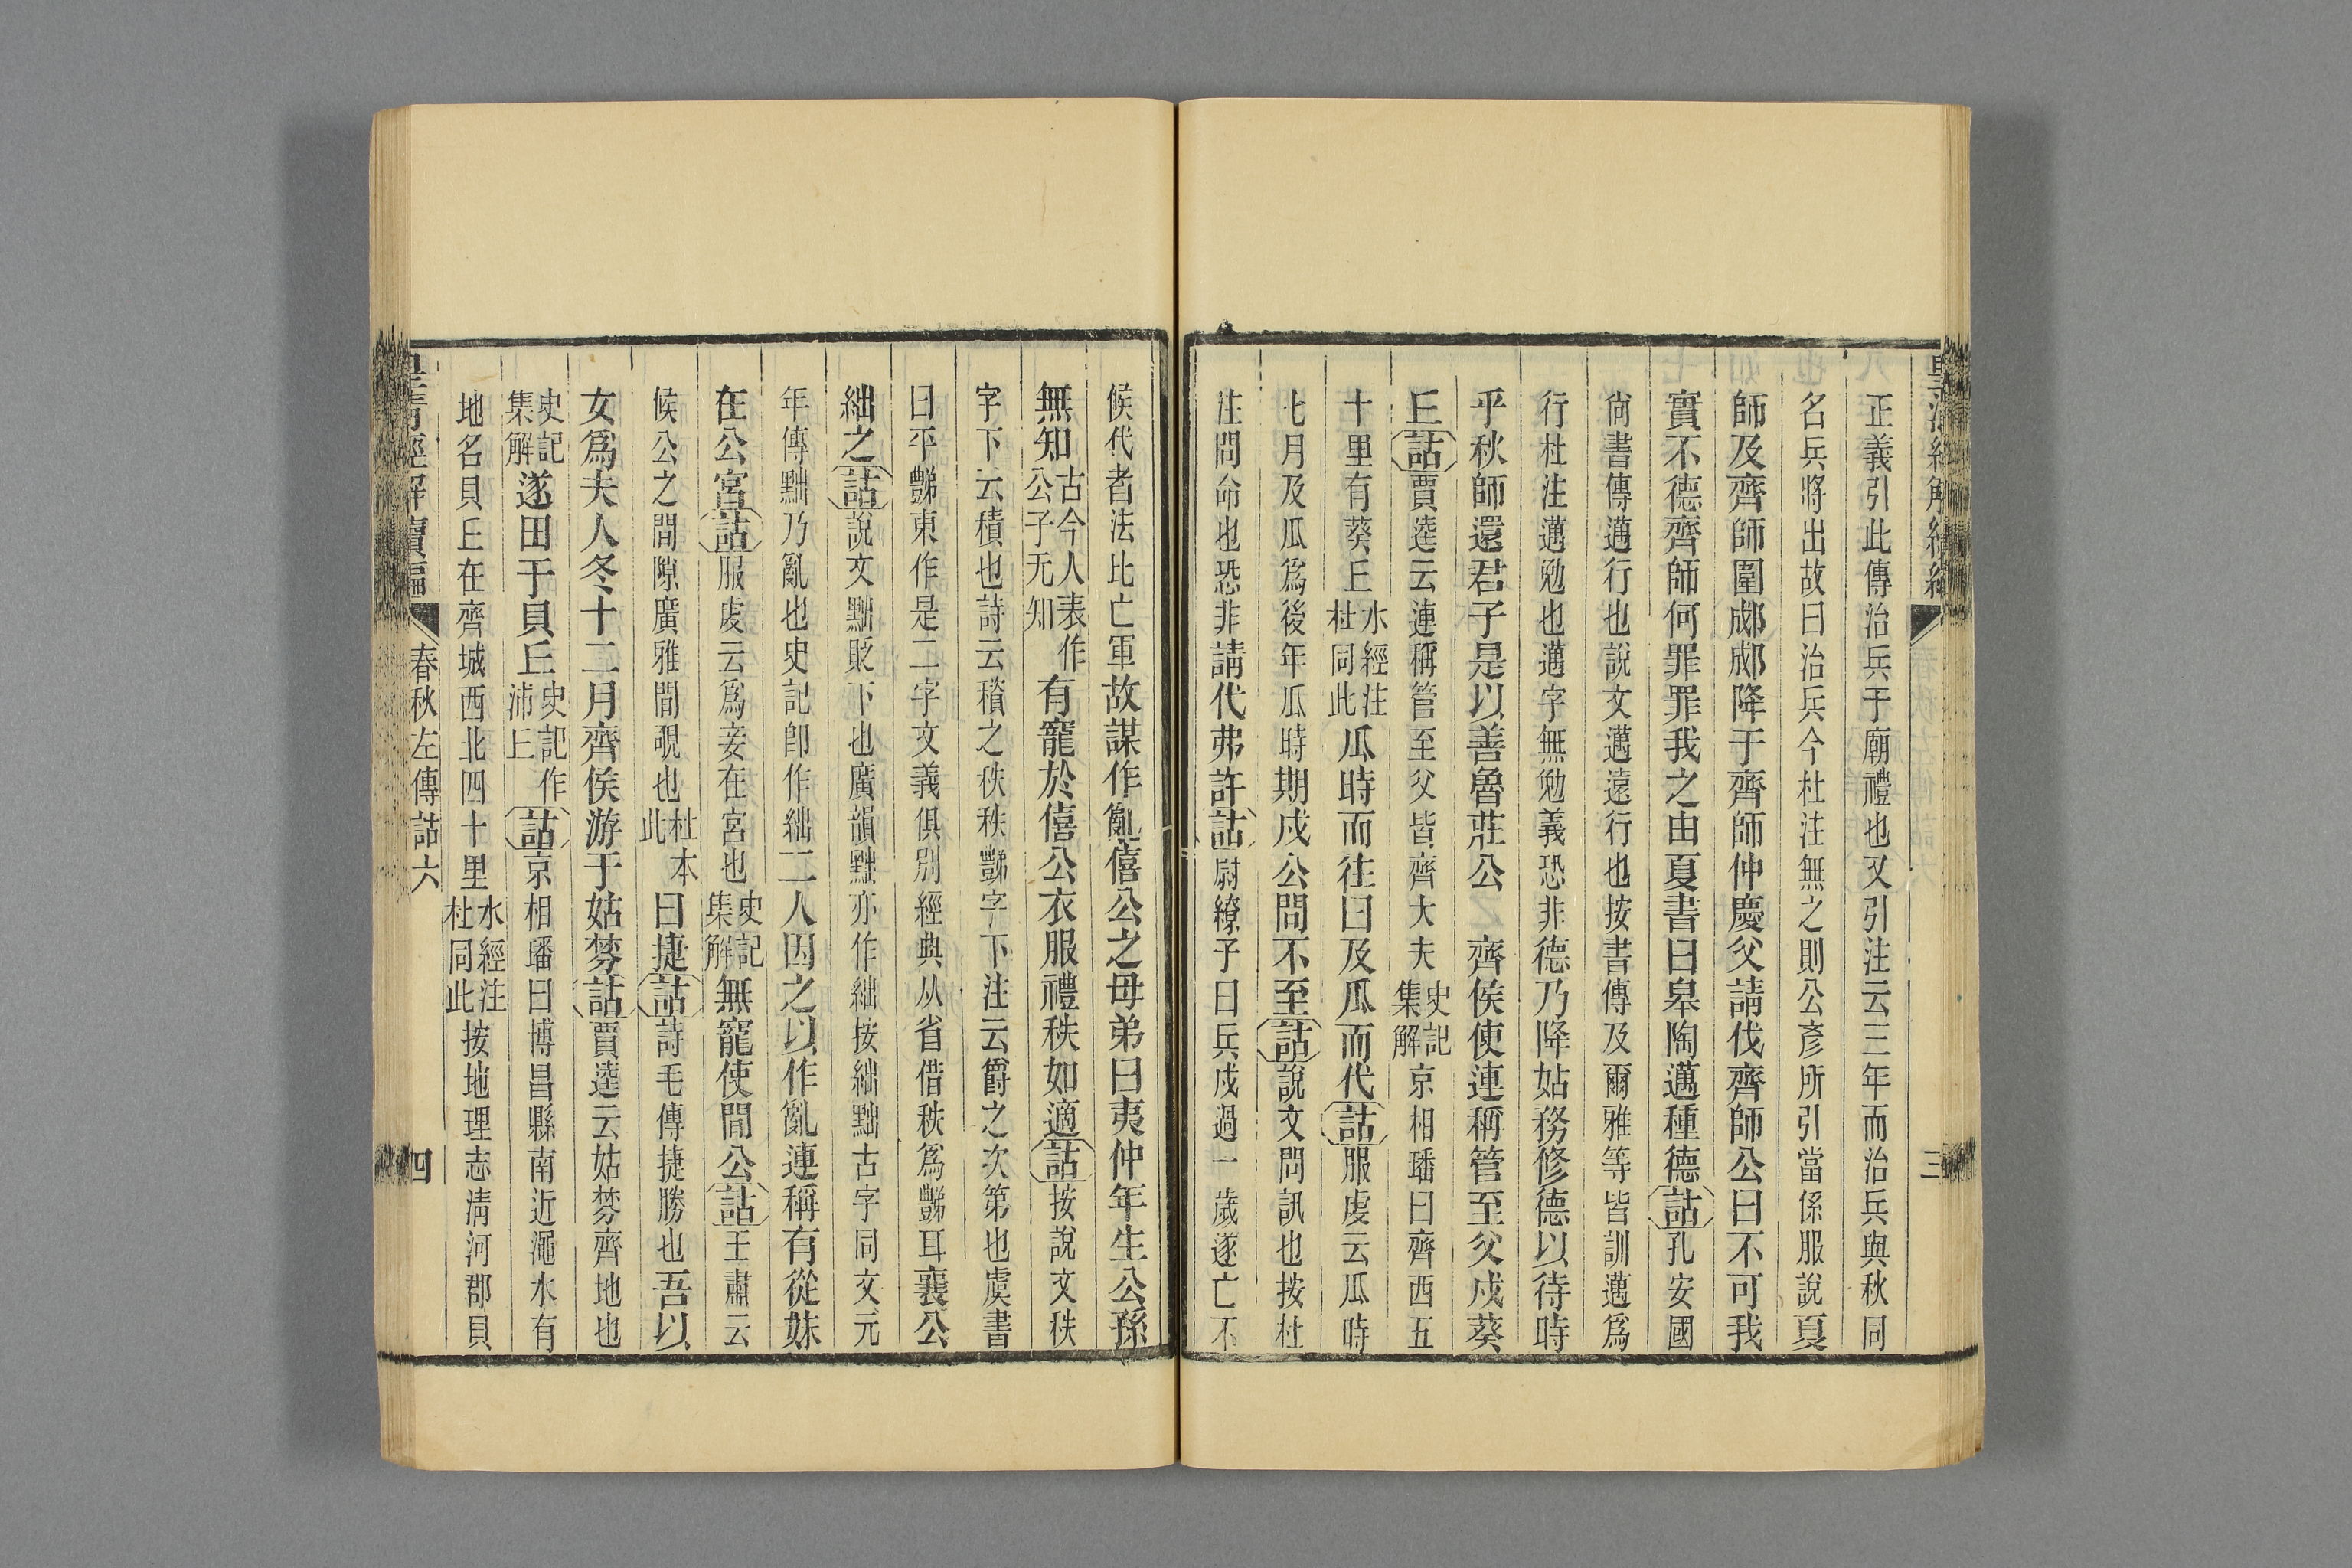 正義引此傳治兵于廟禮也又引注云三年而治兵與秋同
名兵將出故曰治兵今杜注無之則公彥所引當係服說夏
師及齊師圍郕郕降于齊師仲慶父請伐齊師公曰不可我
實不德齊師何罪罪我之由夏書曰皋陶邁種德詁孔安國
尙書傳邁行也說文邁遠行也按書傳及爾雅等皆訓邁爲
行杜注邁勉也邁字無勉義恐非德乃降姑務修德以待時
乎秋師還君子是以善魯莊公 齊侯使連稱管至父戍葵
丘詁賈逵云連稱管至父皆齊大夫史記集解京相璠曰齊西五
十里有葵丘水經注杜同此瓜時而往曰及瓜而代詁服虔云瓜時
七月及瓜爲後年瓜時期戍公問不至詁說文問訊也按杜
注問命也恐非請代弗許詁尉繚子曰兵戍過一歲遂亡不
三
候代者法比亡軍故謀作亂僖公之母弟曰夷仲年生公孫
無知古今人表作公子无知有寵於僖公衣服禮秩如適詁按說文秩
字下云積也詩云䅩之秩秩豑字下注云爵之次第也虞書
曰平豑東作是二字文義俱別經典从省借秩爲豑耳襄公
絀之詁說文黜貶下也廣韻黜亦作絀按絀黜古字同文元
年傳黜乃亂也史記卽作絀二人因之以作亂連稱有從妹
在公宮詁服虔云爲妾在宮也史記集解無寵使閒公詁王肅云
候公之間隙廣雅間覗也杜本此曰捷詁詩毛傳捷勝也吾以
女爲夫人冬十二月齊侯游于姑棼詁賈逵云姑棼齊地也
史記集解遂田于貝丘史記作沛丘詁京相璠曰博昌縣南近澠水有
地名貝丘在齊城西北四十里水經注杜同此按地理志淸河郡貝
皇清經解續編 春秋左傳詁六 四